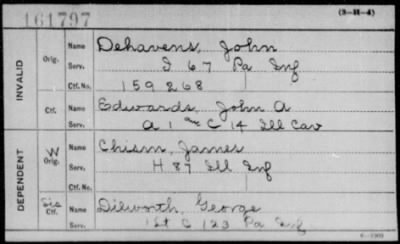 161797
(3-H-4)
INVALID
Orig.
Name Dehavens, John
Serv. I 67 Pa Inf
Ctf. No. 159268
Ctf.
Name Edwards, John A
Serv. A 1 and C 14 Ill Cav
DEPENDENT
W
Orig.
Name Chism, James
Serv. H 87 Ill Inf
Ctf. No.
Ctf.
Name Dilworth, George
Serv. C 123 Pa Inf